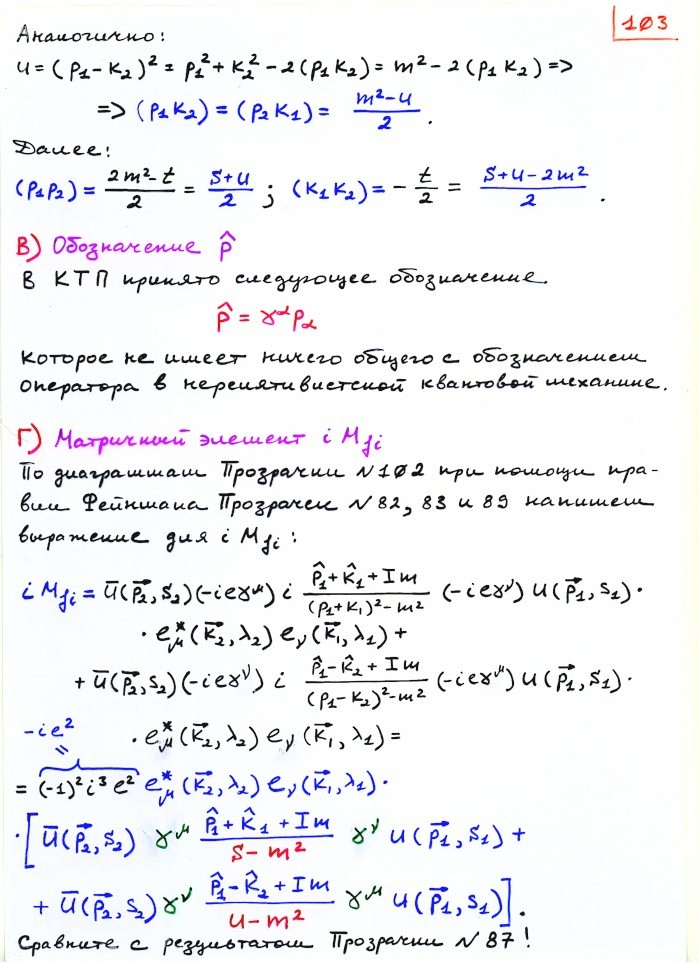 103
Аналогично:
u = (p₁ - k₂)² = p₁² + k₂² - 2(p₁k₂) = m² - 2(p₁k₂) =>
=> (p₁k₂) = (p₂k₁) = (m² - u)/2 .
Далее:
(p₁p₂) = (2m² - t)/2 = (s+u)/2 ; (k₁k₂) = - t/2 = (s+u-2m²)/2 .
В) Обозначение p̂
В КТП принято следующее обозначение
p̂ = γ^α p_α
которое не имеет ничего общего с обозначением
оператора в нерелятивистской квантовой механике.
Г) Матричный элемент i M_fi
По диаграммам Прозрачки N102 при помощи пра-
вил Фейнмана Прозрачек N82, 83 и 89 напишем
выражение для i M_fi :
i M_fi = ū(p⃗₂, s₂)(-ieγ^μ) i (p̂₁ + k̂₁ + Im)/((p₁+k₁)² - m²) (-ieγ^ν) u(p⃗₁, s₁) ·
· e*_μ(k⃗₂, λ₂) e_ν(k⃗₁, λ₁) +
+ ū(p⃗₂, s₂)(-ieγ^ν) i (p̂₁ - k̂₂ + Im)/((p₁-k₂)² - m²) (-ieγ^μ) u(p⃗₁, s₁) ·
· e*_μ(k⃗₂, λ₂) e_ν(k⃗₁, λ₁) =
-ie²
=
= (-1)² i³ e² e*_μ(k⃗₂, λ₂) e_ν(k⃗₁, λ₁) ·
· [ū(p⃗₂, s₂) γ^μ (p̂₁ + k̂₁ + Im)/(s - m²) γ^ν u(p⃗₁, s₁) +
+ ū(p⃗₂, s₂) γ^ν (p̂₁ - k̂₂ + Im)/(u - m²) γ^μ u(p⃗₁, s₁)] .
Сравните с результатом Прозрачки N87!